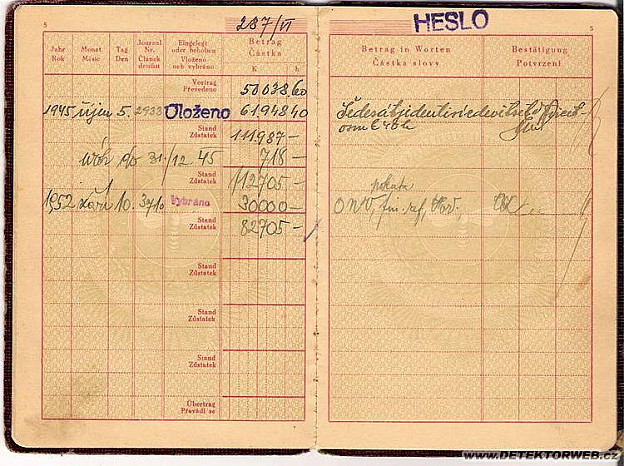 5 287/VI HESLO 5
Jahr Rok Monat Měsíc Tag Den Journal Nr. Článek deníku Eingelegt oder behoben Vloženo neb vybráno Betrag Částka K h Betrag in Worten Částka slovy Bestätigung Potvrzení
Vortrag Převedeno 50038,60
1945 říjen 5. 2933 Uloženo 61948 40
Stand Zůstatek 111.987 —
úrok do 31/12 45 718 —
Stand Zůstatek 112705 —
1952 září 10. 3710 Vybráno 30000 — pokuta
ONV, fin. ref.
Stand Zůstatek 82705 —
Stand Zůstatek
Stand Zůstatek
Stand Zůstatek
Übertrag Převádí se
www.DETEKTORWEB.cz